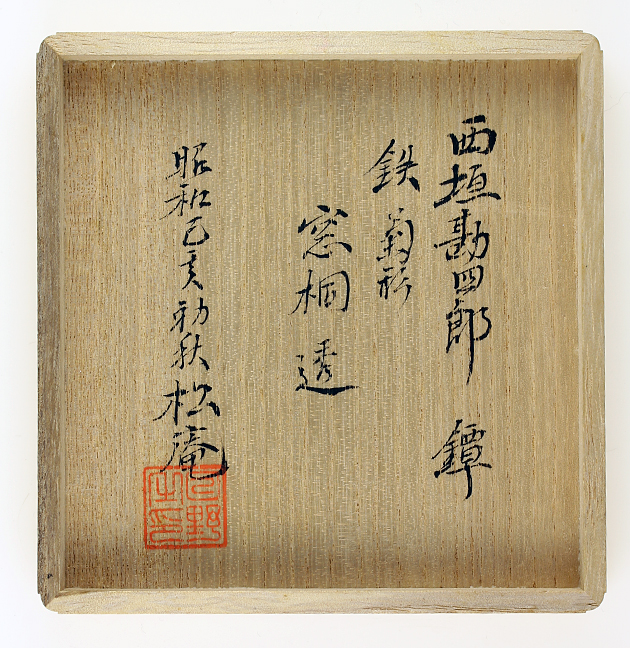 西垣勘四郎 鐔
鉄 菊形
窓桐 透
昭和己亥初秋 松庵
野之印